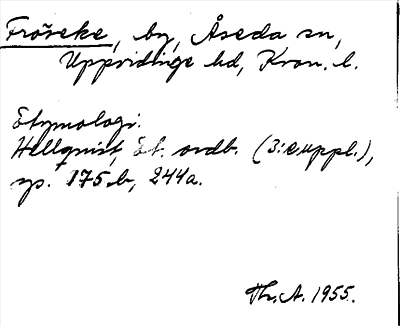 Fröreke, by, Åseda sn,
Uppvidinge hd, Kron. l.
Etymologi:
Hellquist, Et. ordb. (3:e uppl.),
sp. 175 b, 244a.
Th. A. 1955.